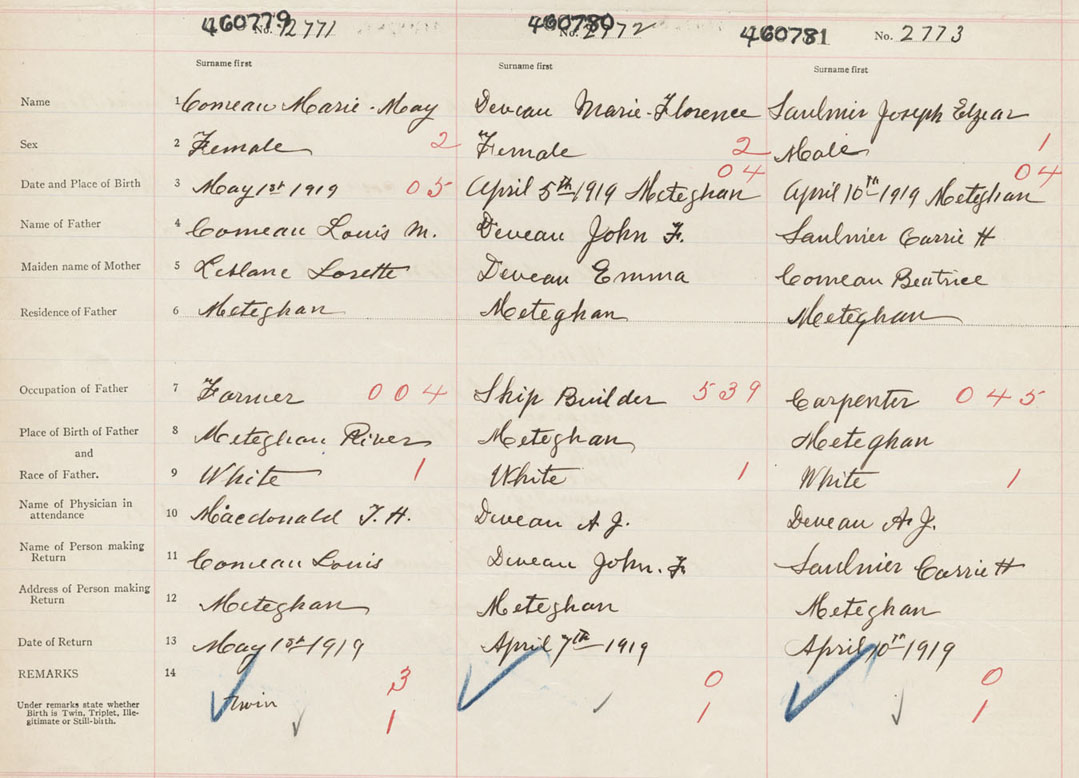 460779 No. 2771 460780 No. 2772 460781 No. 2773
Surname first Surname first Surname first
Name 1 Comeau Marie-May Deveau Marie-Florence Saulnier Joseph Elzear
Sex 2 Female 2 Female 2 Male 1
Date and Place of Birth 3 May 1st 1919 05 April 5th 1919 Meteghan 04 April 10th 1919 Meteghan 04
Name of Father 4 Comeau Louis M. Deveau John F. Saulnier Carrie H
Maiden name of Mother 5 Leblanc Losette Deveau Emma Comeau Beatrice
Residence of Father 6 Meteghan Meteghan Meteghan
Occupation of Father 7 Farmer 004 Ship Builder 539 Carpenter 045
Place of Birth of Father 8 Meteghan River Meteghan Meteghan
and
Race of Father. 9 White 1 White 1 White 1
Name of Physician in
attendance 10 Macdonald T. H. Deveau A J. Deveau A. J.
Name of Person making
Return 11 Comeau Louis Deveau John. F. Saulnier Carrie H
Address of Person making
Return 12 Meteghan Meteghan Meteghan
Date of Return 13 May 1st 1919 April 7th 1919 April 10th 1919
REMARKS 14 3 0 0
Under remarks state whether
Birth is Twin, Triplet, Ille-
gitimate or Still-birth. Twin 1 1 1